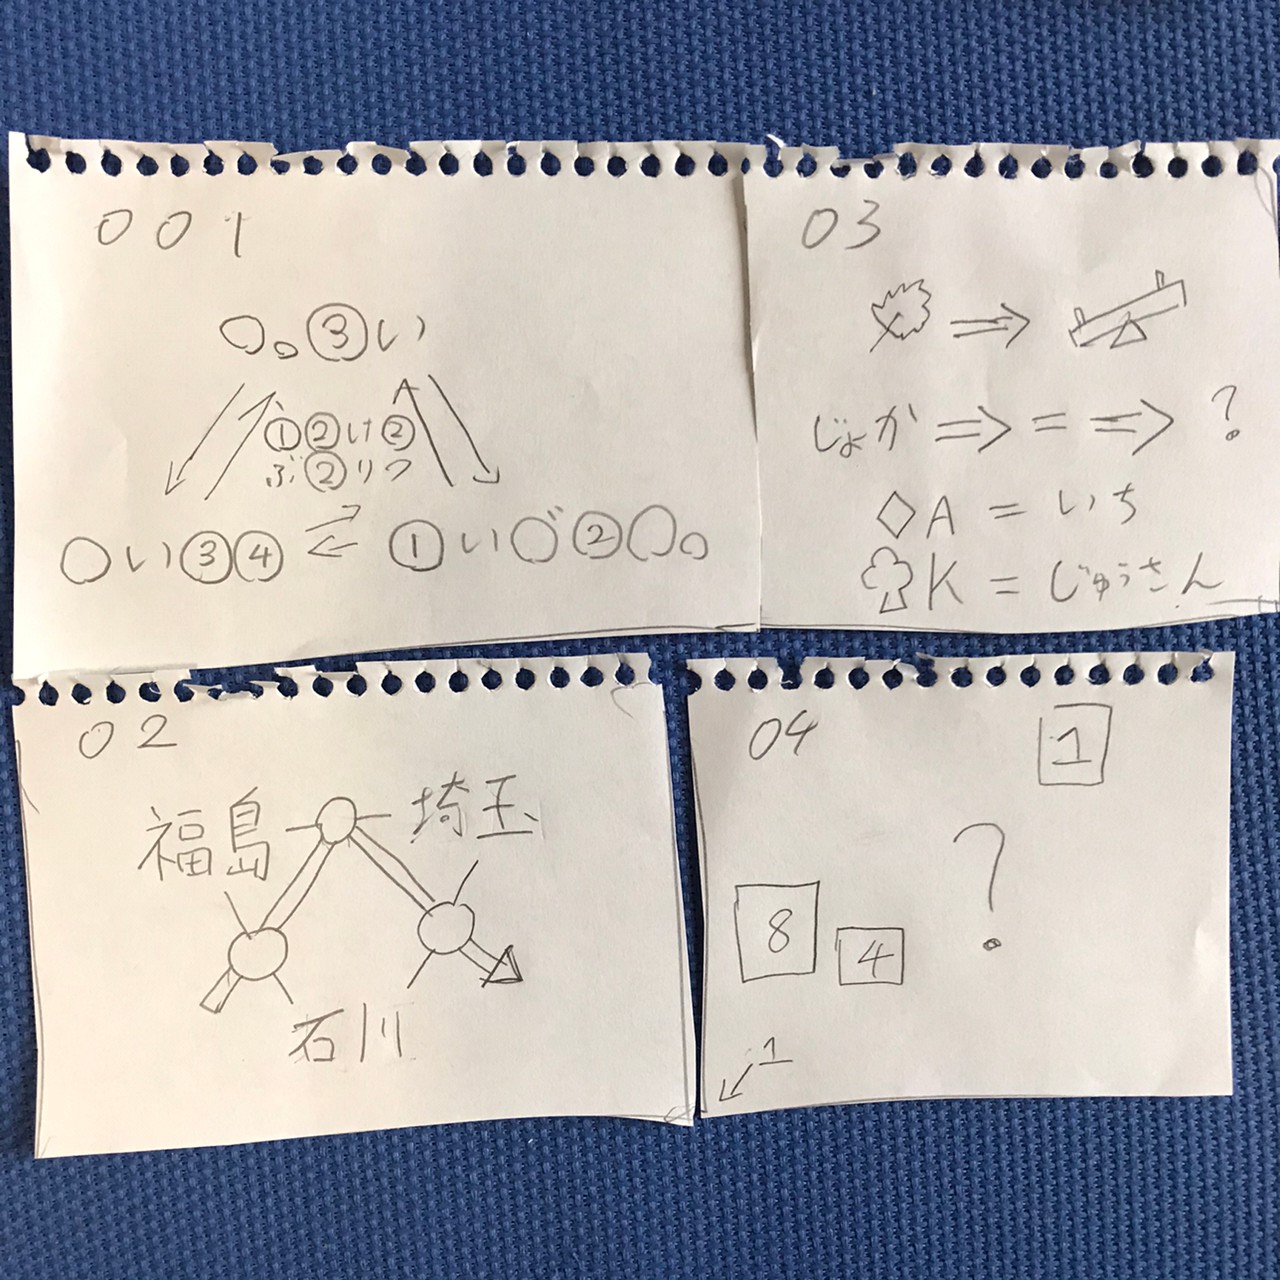 001
○。③い
①②け②
ぶ②りつ
○い③④
①い○゛②○。
03
じょか ⇒ = ⇒ ?
◇A = いち
♧K = じゅうさん
02
福島
埼玉
石川
04
1
?
8
4
1